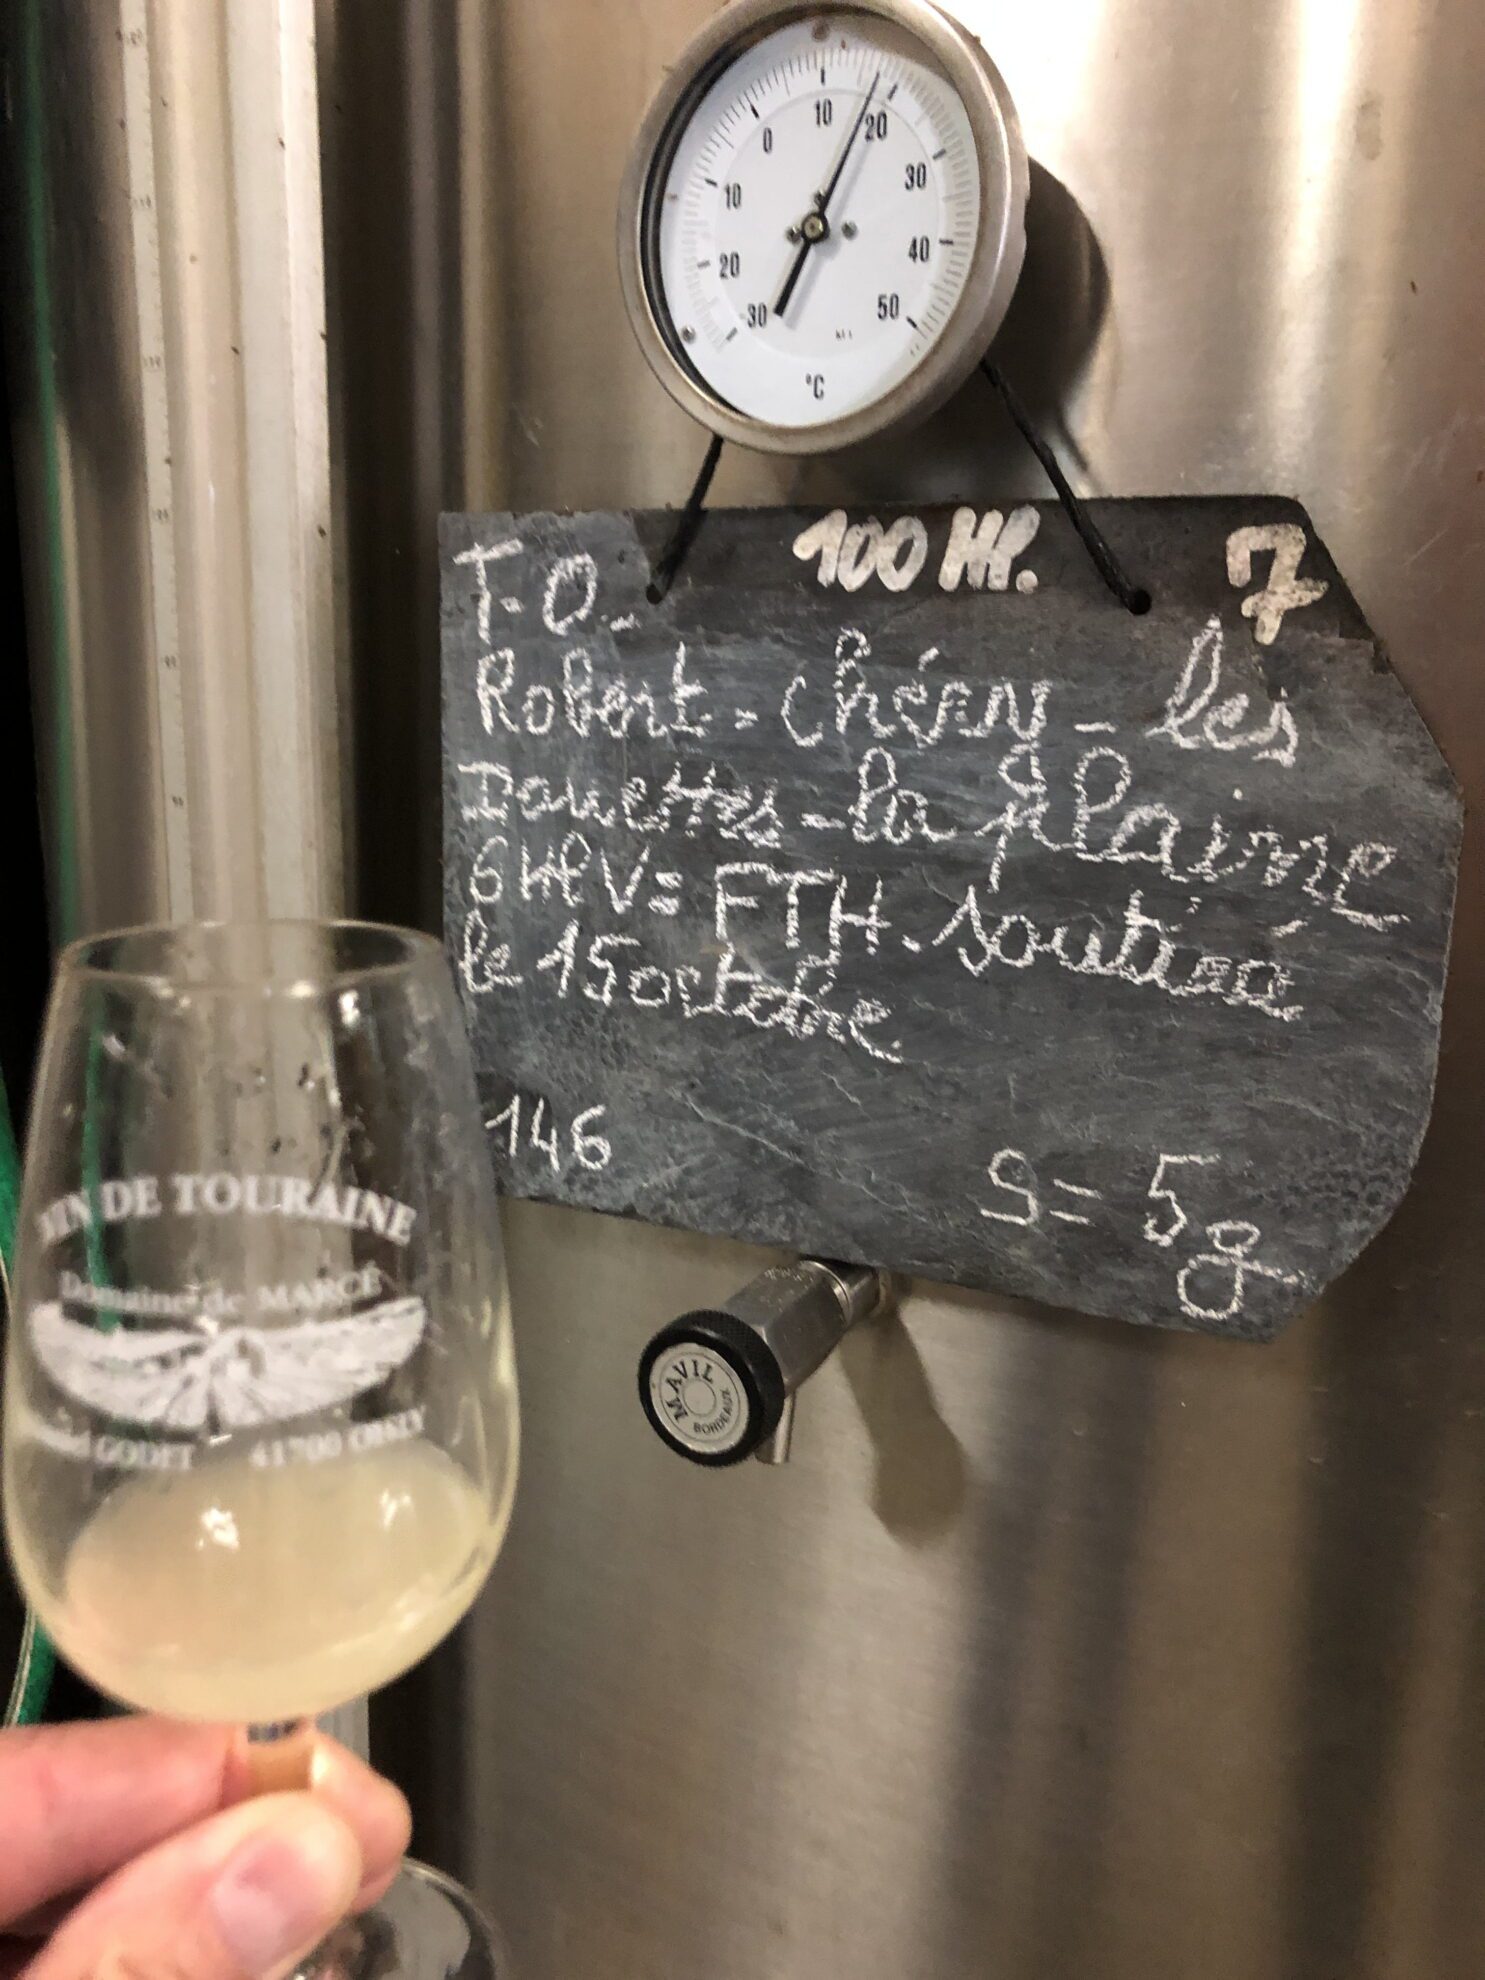 0 10 20 30 40 50
10 20 30
°C
100 Hl. 7
T-O-
Robert - Chéry - les
- la plaine
6 Hl V = FTH - soutiré
le 15 octobre
146
S = 5g
MAVIL
BORDEAUX
VIN DE TOURAINE
Domaine de MARCÉ
GODET 41700